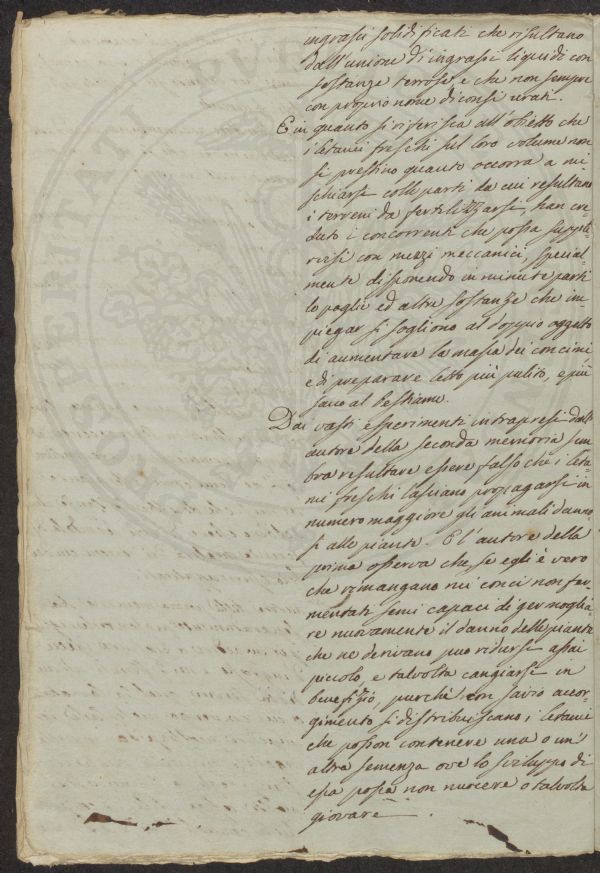 ingrassi solidificati che risultano
dall'unione di ingrassi liquidi con
sostanze terrose, e che non sempre
con proprio nome diconsi urati.
E in quanto si riferisca all'obietto che
i letami freschi pel loro volume non
si prestino quanto occorra a mi
schiarsi colle parti da cui resultano
i terreni da fertilizzarsi, han cre
duto i concorrenti che possa suppli
rsi con mezzi meccanici, special-
mente disponendo in minute parti
le paglie ed altre sostanze che im
piegar si sogliono al doppio oggetto
di aumentare la massa dei concimi
e di preparare letto più pulito, e più
sano al bestiame.
Dai vasti esperimenti intrapresi dall'
autore della seconda memoria sem
bra resultare essere falso che i leta-
mi freschi lasciano propagarsi in
numero maggiore gli animali danno
si alle piante. E l'autore della
prima osserva che, se egli è vero
che rimangano nei conci non fer
mentati semi capaci di germoglia
re nuovamente il danno delle piante
che ne derivano può ridursi assai
piccolo, e talvolta cangiarsi in
benefizio, purchè con savio accor-
gimento si distribuiscano i letami
che posson contenere una o un'
altra semenza ove lo sviluppo di
essa possa non nuocere o talvolta
giovare.